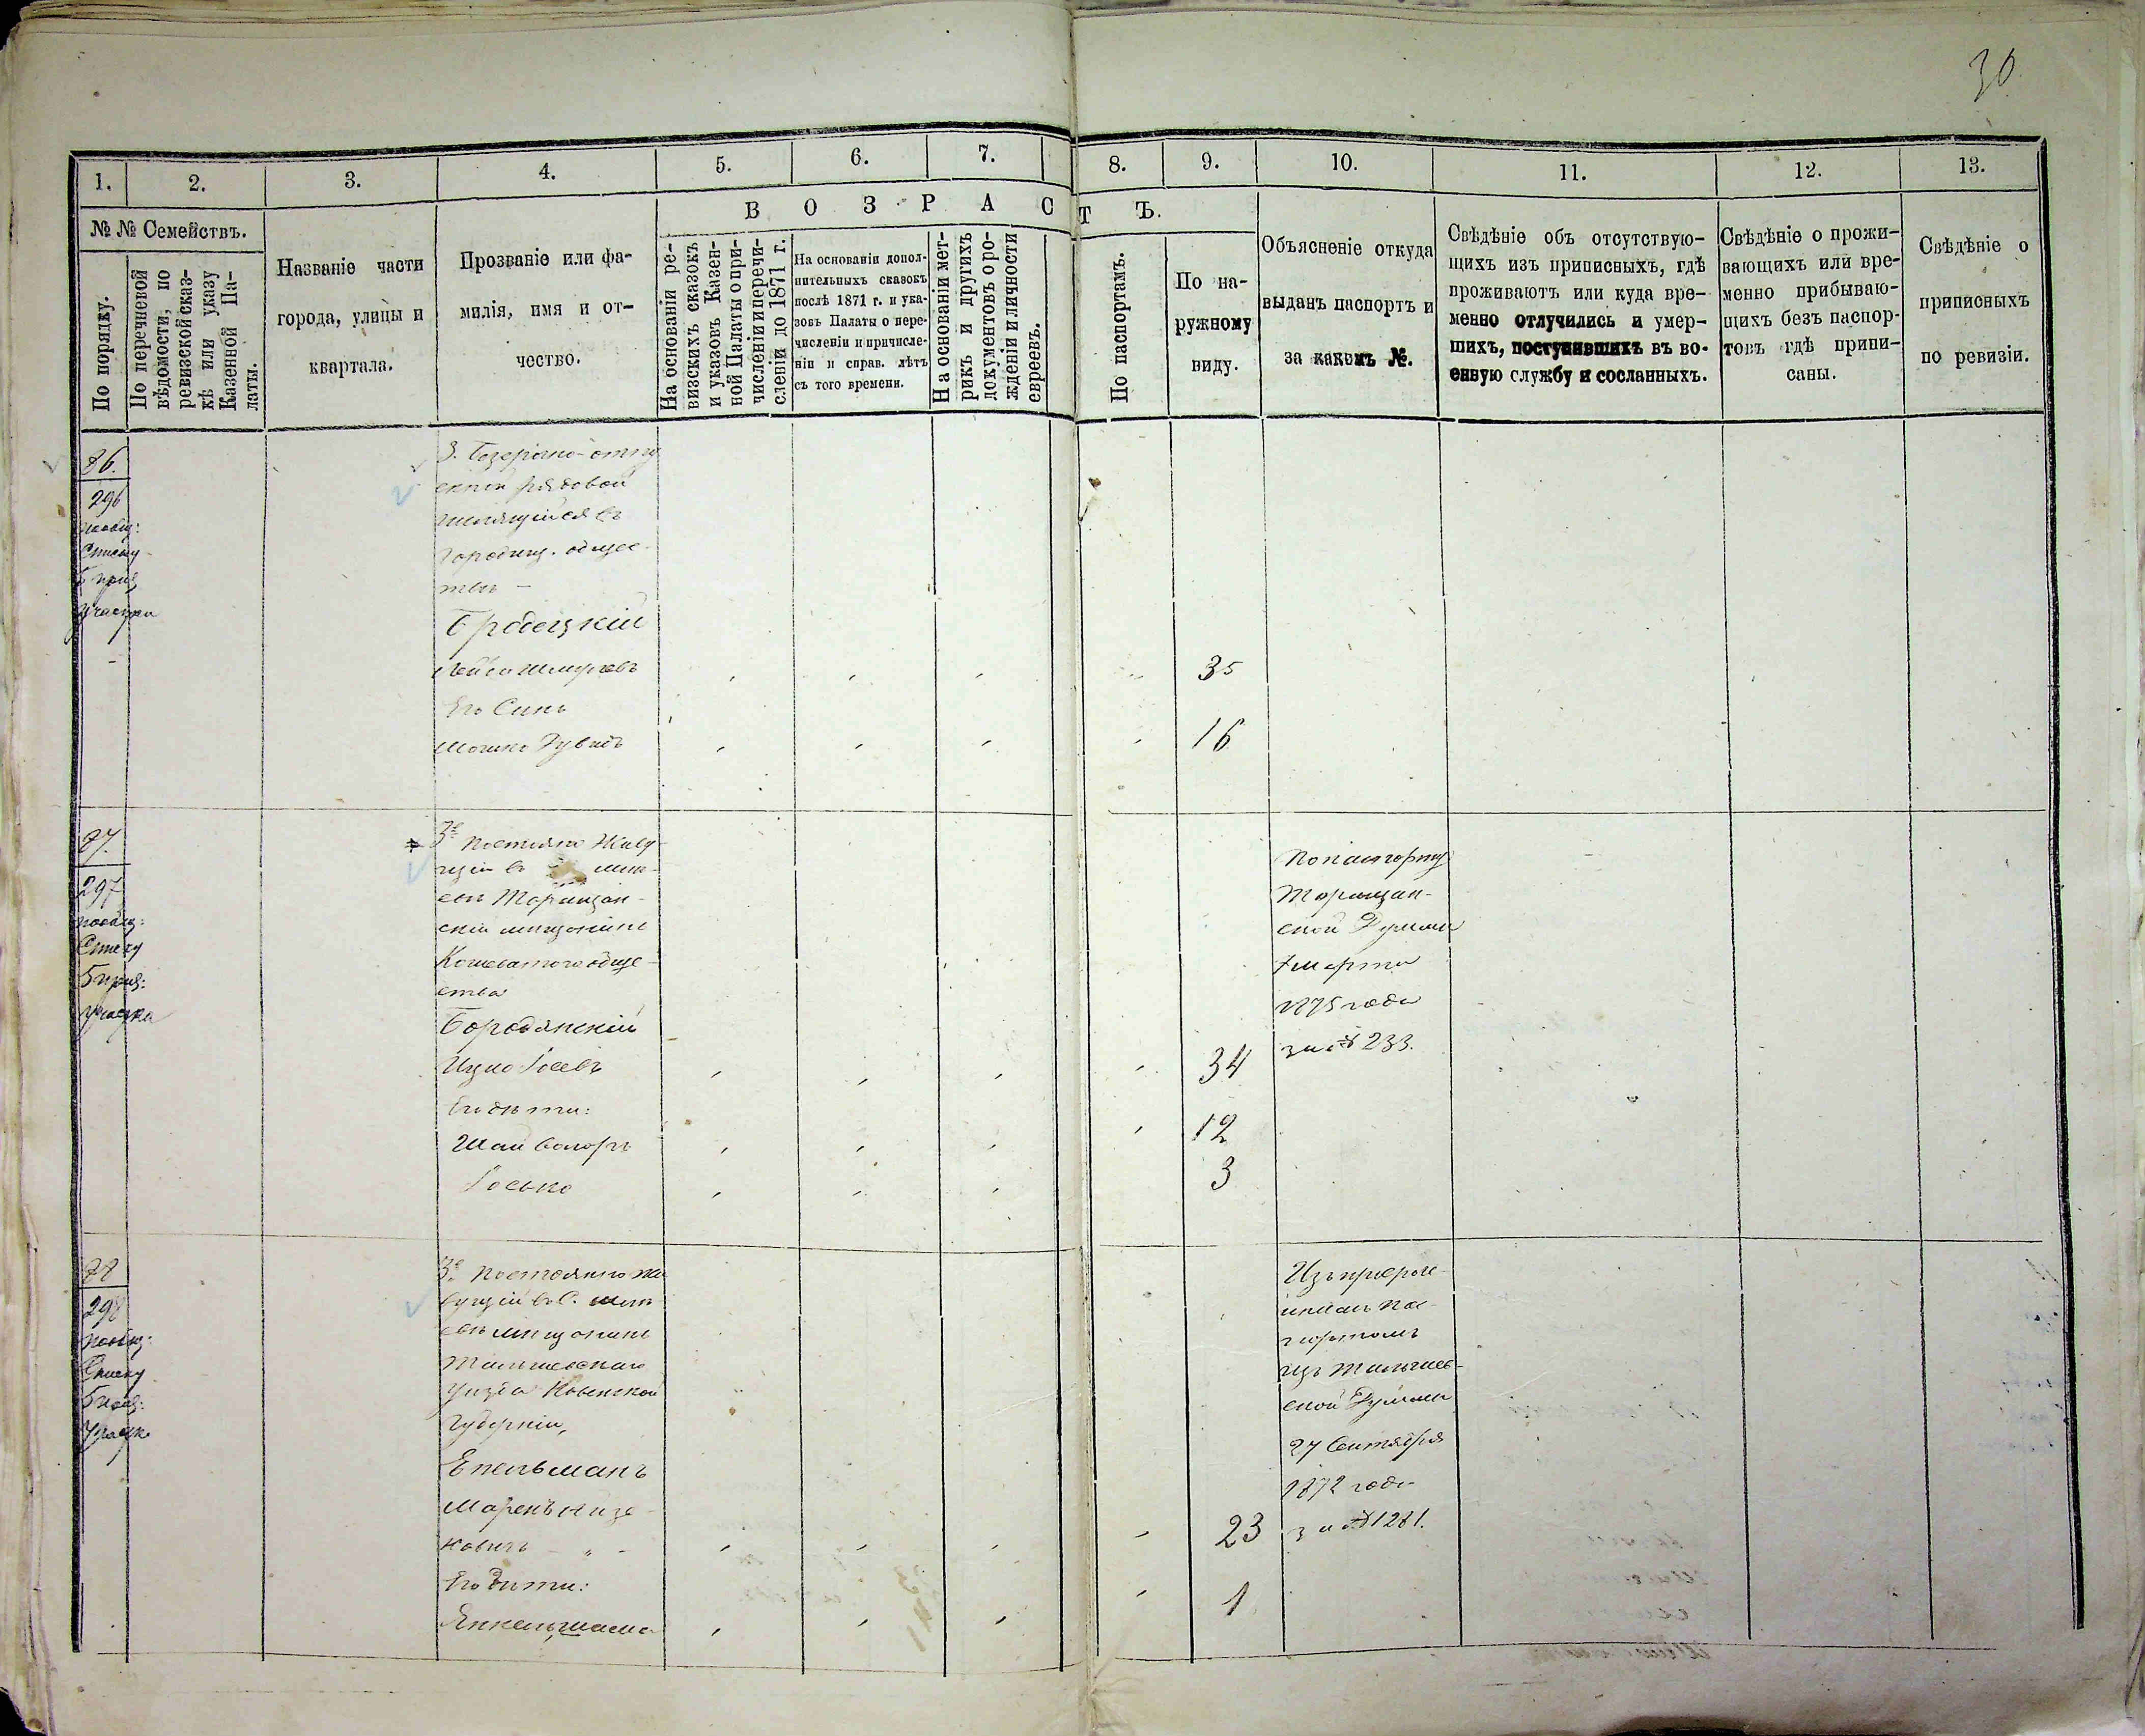 30.
1. 2. 3. 4. 5. 6. 7. 8. 9. 10. 11. 12. 13.
№ № Семействъ.
По порядку.
По перечневой
вѣдомости, по
ревизской сказ-
кѣ или указу
Казенной Па-
латы.
Названіе части
города, улицы и
квартала.
Прозваніе или фа-
милія, имя и от-
чество.
В О З Р А С Т Ъ.
На основаніи ре-
визскихъ сказокъ
и указовъ Казен-
ной Палаты о при-
численіи и перечи-
сленіи до 1871 г.
На основаніи допол-
нительныхъ сказокъ
послѣ 1871 г. и ука-
зовъ Палаты о пере-
численіи и причисле-
ніи и справ. лѣтъ
съ того времени.
На основаніи мет-
рикъ и другихъ
документовъ о ро-
жденіи и личности
евреевъ.
По паспортамъ.
По на-
ружному
виду.
Объясненіе откуда
выданъ паспортъ и
за какомъ №.
Свѣдѣніе объ отсутствую-
щихъ изъ приписныхъ, гдѣ
проживаютъ или куда вре-
менно отлучились и умер-
шихъ, поступившихъ въ во-
енную службу и сосланныхъ.
Свѣдѣніе о прожи-
вающихъ или вре-
менно прибываю-
щихъ безъ паспор-
товъ гдѣ припи-
саны.
Свѣдѣніе о
приписныхъ
по ревизіи.
86.
296
Списку
5 приз
участка
рядовой
Городищ. общес-
Бродецкій
Лейба Шмулевъ 35
Его Сынъ
Мошко Дувидъ 16
87.
297
Списку
5 приз:
участка
Живу-
щій въ
Таращан-
скій мещанинъ
Кошеватого обще-
ства
Бородянскій
Ицко Іосевъ 34
Его дѣти:
12
Іосько 3
По паспорту
Таращан-
ской Думы
7 марта
1875 года
за № 233.
88
298
Списку
5 приз:
участк.
3е. Постоянно жи
вущій въ С.
мещанинъ
уѣзда Ковенской
губерніи,
Епельманъ
23
Его дѣти:
1
Изъ
ской Думы
27 Сентября
1872 года
за № 1281.